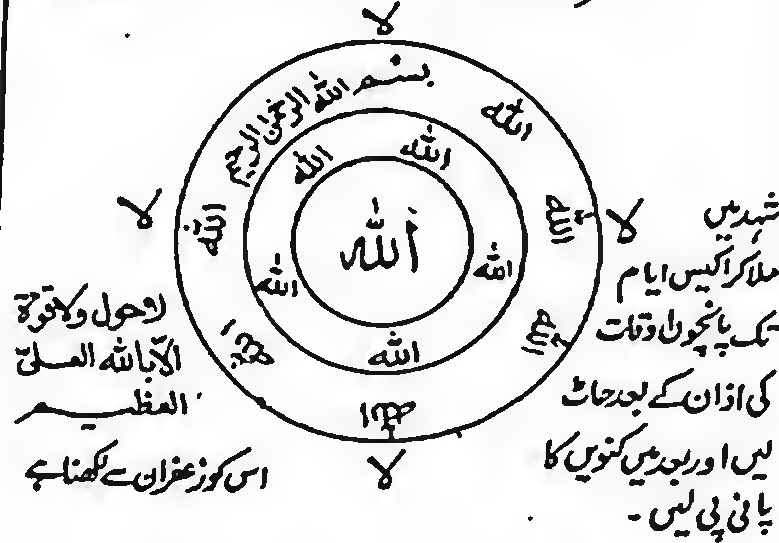 لا
بسم الله الرحمن الرحيم
الله
الله
الله
الله
الله
الله
الله
الله
الله
الله
الله
الله
لا
لا
لا
شہد میں
ملاکر اکیس ایام
تک پانچوں اوقات
کی اذان کے بعد چاٹ
لیں اور بعد میں کنویں کا
پانی پی لیں ۔
لاحول ولا قوة
الّا باللہ العلیّ
العظیم
اس کو زعفران سے لکھنا ہے